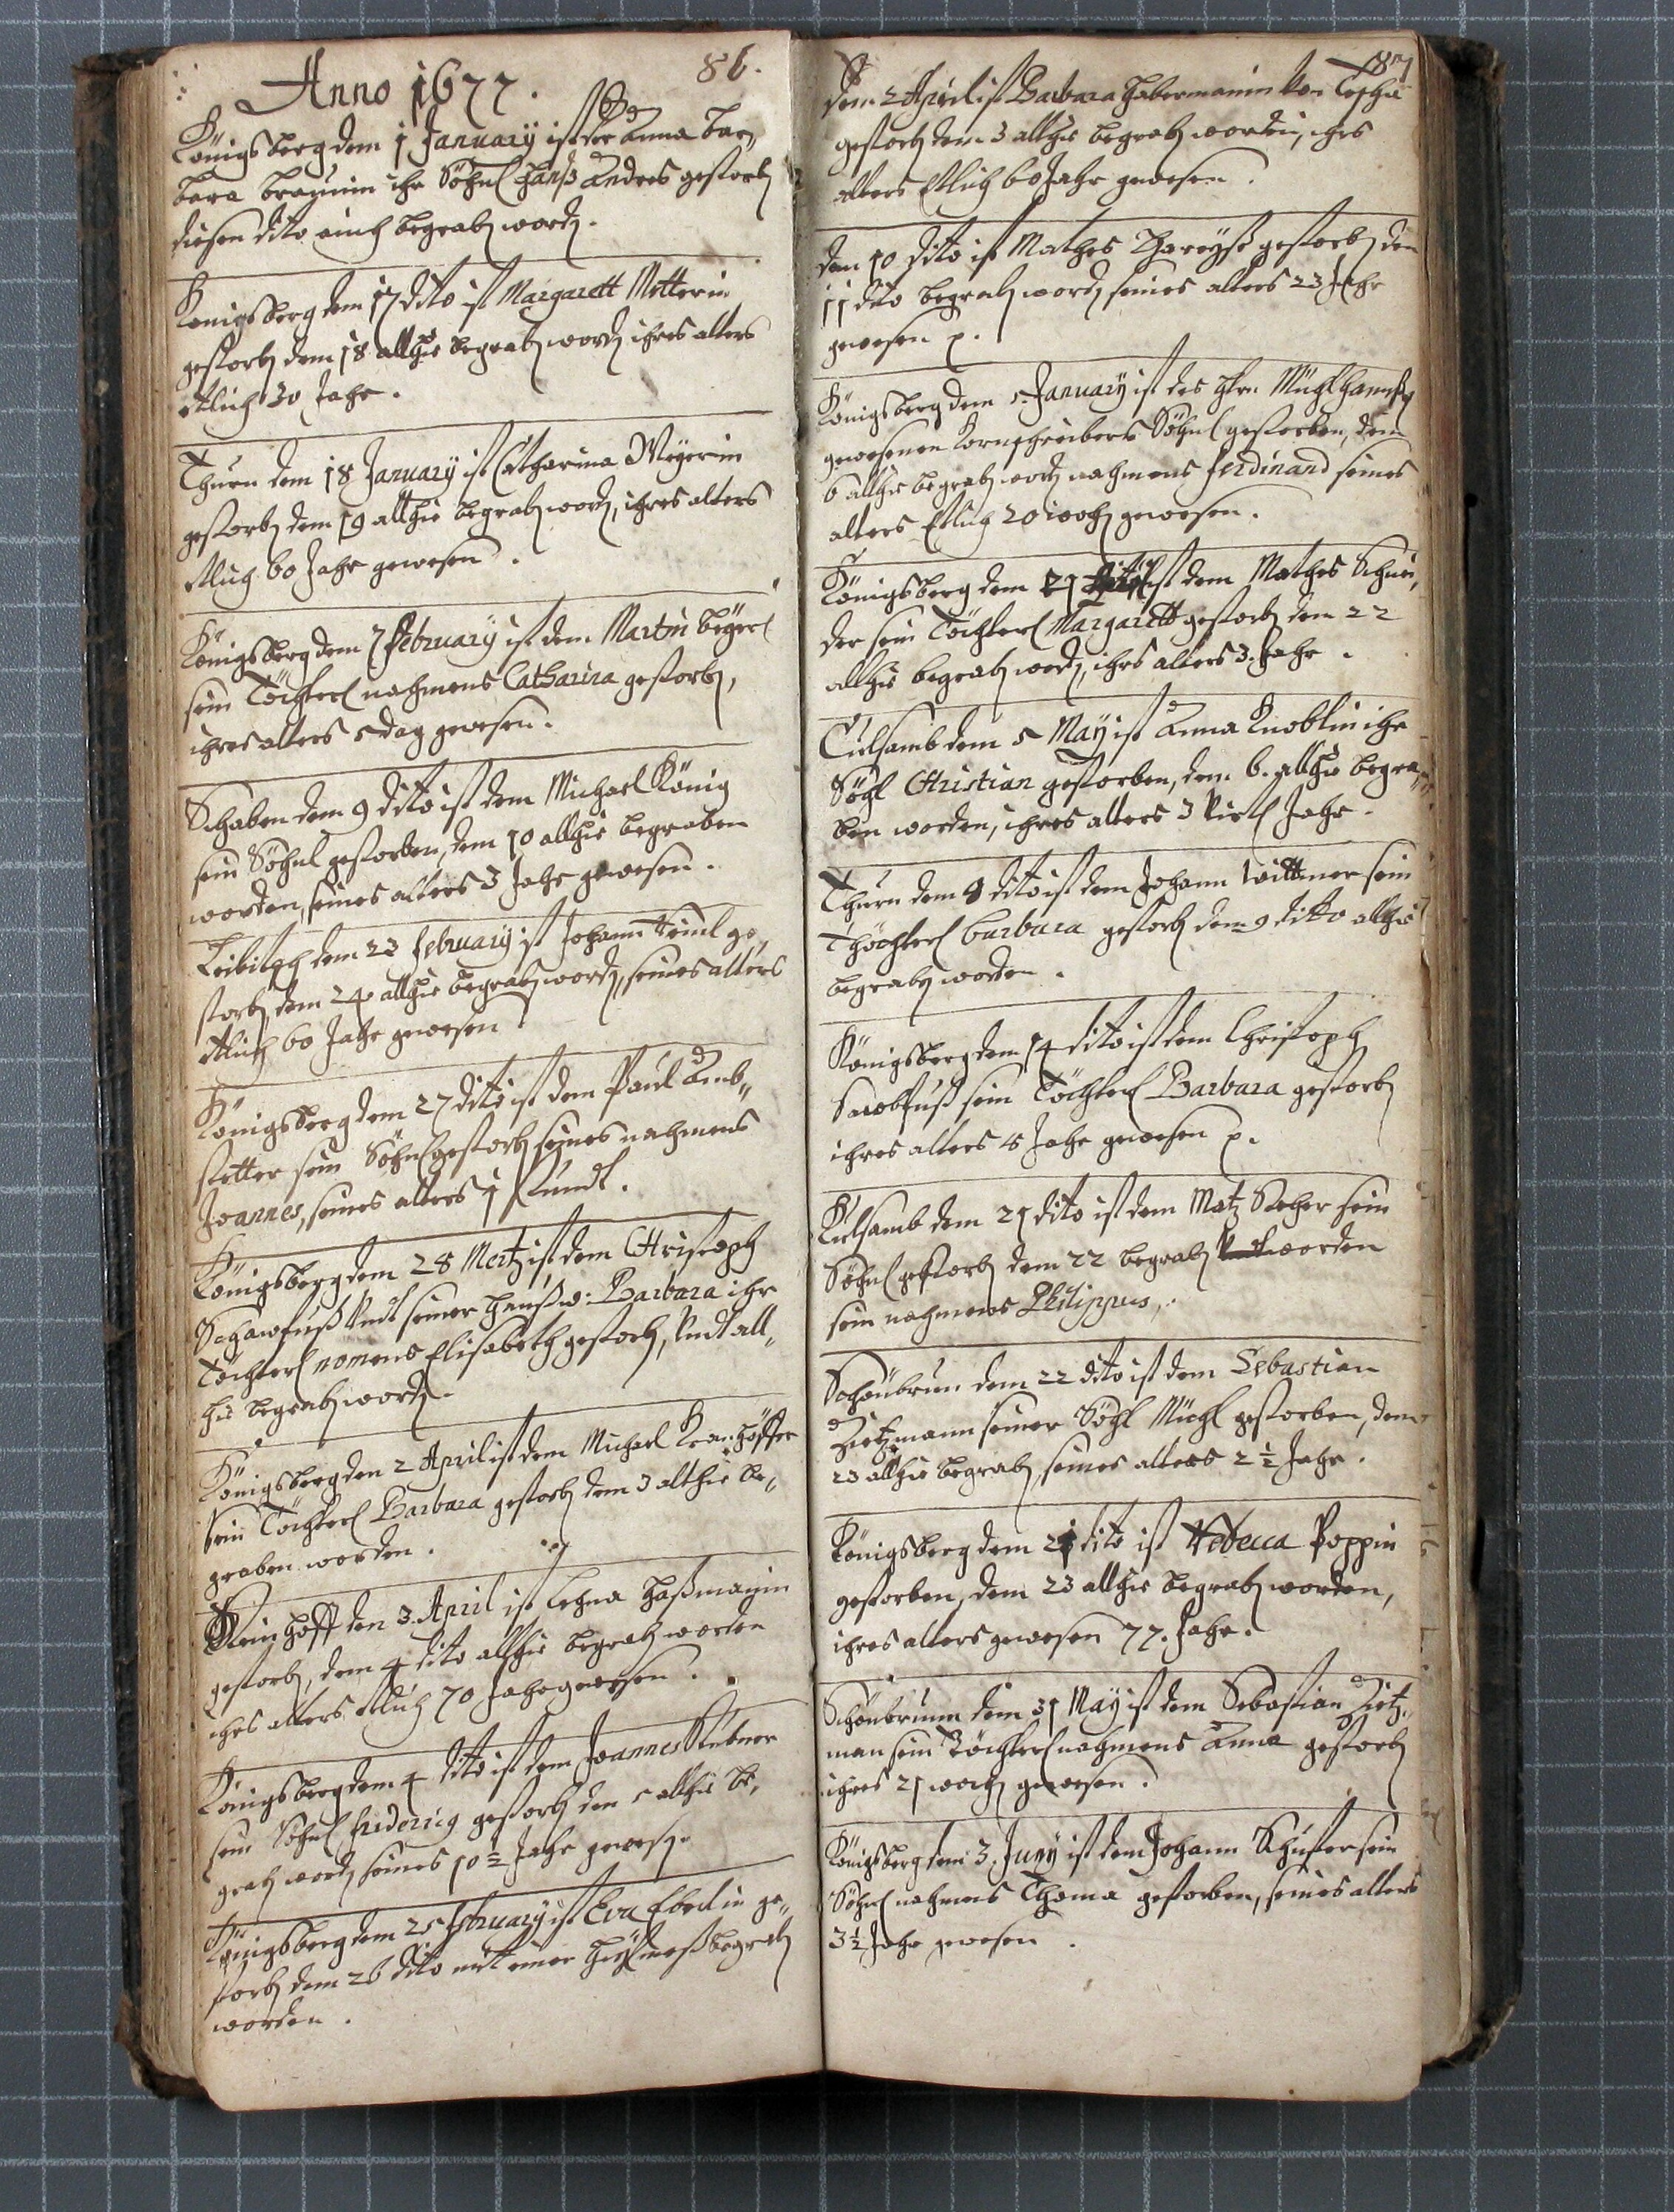 86.
Anno 1677.
Königsberg dem 1 January ist der Anna bar„
bara braunin ihr Söhnl Hanß Andres gestorbn
diesen dito auch begrabn wordn.
Königsberg dem 17 dito ist Margarett Metterin
gestorbn dem 18 allhie begrabn wordn ihres alters
etlich 30 Jahr.
Thurn dem 18 January ist Catharina Meyerin
gestorbn dem 19 allhie begrabn wordn, ihres alters
etlich 60 Jahr gewesen.
Königsberg dem 7 february ist dem Martin beyerl
sein Töchterl nahmens Catharina gestorbn,
ihres alters 5 dag gewesen.
Schaben dem 9 dito ist dem Michael König
sein Söhnl gestorben, dem 10 allhie begraben
worden, seines alters 3 Jahr gewesen.
dem 23 february ist Johann ge„
storbn dem 24 allhie begrabn wordn, seines alters
etlich 60 Jahr gewesen
Königsberg dem 27 dito ist dem Paul Amb„
stetter sein Söhnl gestorbn seines nahmens
Joannes, seines alters 1 stundt.
Königsberg dem 28 Mertz ist dem Christoph
Schawfuß Vndt seiner haußw: Barbara ihr
Töchterl nomens Elisabeth gestorbn, Vndt all„
hie begrabn wordn.
Königsberg den 2 April ist dem Michael
sein Töchterl Barbara gestorbn dem 3 allhie be„
graben worden.
Steinhoff den 3. April ist Lehna Haßmayin
gestorbn, dem 4 dito allhie begrabn worden
ihres alters etlich 70 Jahr gewesen.
Königsberg dem 4 dito ist dem Joannes Stübner
sein Söhnl friderrig gestorbn den 5 allhie be„
grabn wordn seines 10 ½ Jahr gewesn.
Königsberg dem 25 february ist Eva Eberlin ge„
storbn dem 26 dito mit einer begrabn
worden.
87
dem 2 April ist Barbara Habermanin von
gestorbn dem 3 allhie begrabn worden, ihrs
alters Etlich 60 Jahr gewesen.
den 10 dito ist Mathes gestorbn den
11 dito begrabn wordn seines alters 23 Jahr
gewesen p.
Königsberg dem 5. January ist des Hrn.
gewesenen Kornschreibers Söhnl gestorben, dem
6 allhie begrabn wordn nahmens ferdinand seines
alters Etlich 20 wochn gewesen.
Königsberg dem 21 ist dem Mathes Schnei„
der sein Töchterl Margarett gestorbn dem 22
allhie begrabn wordn, ihrs alters 3. Jahr.
Culsamb dem 5 May ist Anna Knoblin ihr
Söhl Christian gestorben, dem 6. allhie begra„
ben worden, ihres alters 3 Virtl Jahr.
Thurn dem 8 dito ist dem Johann Wittmer sein
Thöchterl barbara gestorbn dem 9 ditto allhie
begrabn worden.
Königsberg dem 14 dito ist dem Christoph
sein Töchterl Barbara gestorbn
ihres alters 4 Jahr gewesen p.
Kulsamb dem 21 dito ist dem Matz Sacher sein
Söhnl gestorbn dem 22 begrabn worden
sein nahmens Philippus,.
Schönbrun dem 22 dito ist dem Sebastian
Dietzmann seiner Söhl Michl gestorben, dem
23 allhie begrabn, seines alters 2 ½ Jahr.
Königsberg dem 21 dito ist Rebecca Poppin
gestorben, dem 23 allhie begrabn worden,
ihres alters gewesen 77. Jahr.
Schönbrunn dem 31 May ist dem Sebastian Dietz„
man sein Töchterl nahmens Anna gestorbn
ihres 21 wochn gewesen.
Königsberg dem 3. Juny ist dem Johann Schuster sein
Söhnl nahmens Thoma gestorben, seines alters
3 ½ Jahr gewesen.